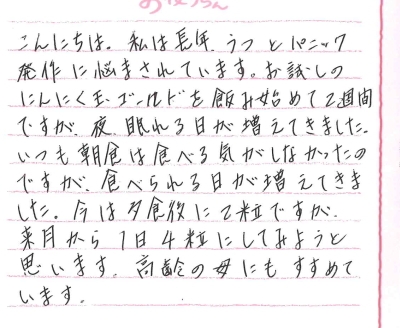 こんにちは。私は長年、うつとパニック
発作に悩まされています。お試しの
にんにく玉ゴールドを飲み始めて2週間
ですが、夜、眠れる日が増えてきました。
いつも朝食は食べる気がしなかったの
ですが、食べられる日が増えてきま
した。今は夕食後に2粒ですが、
来月から1日4粒にしてみようと
思います。高齢の母にもすすめて
います。